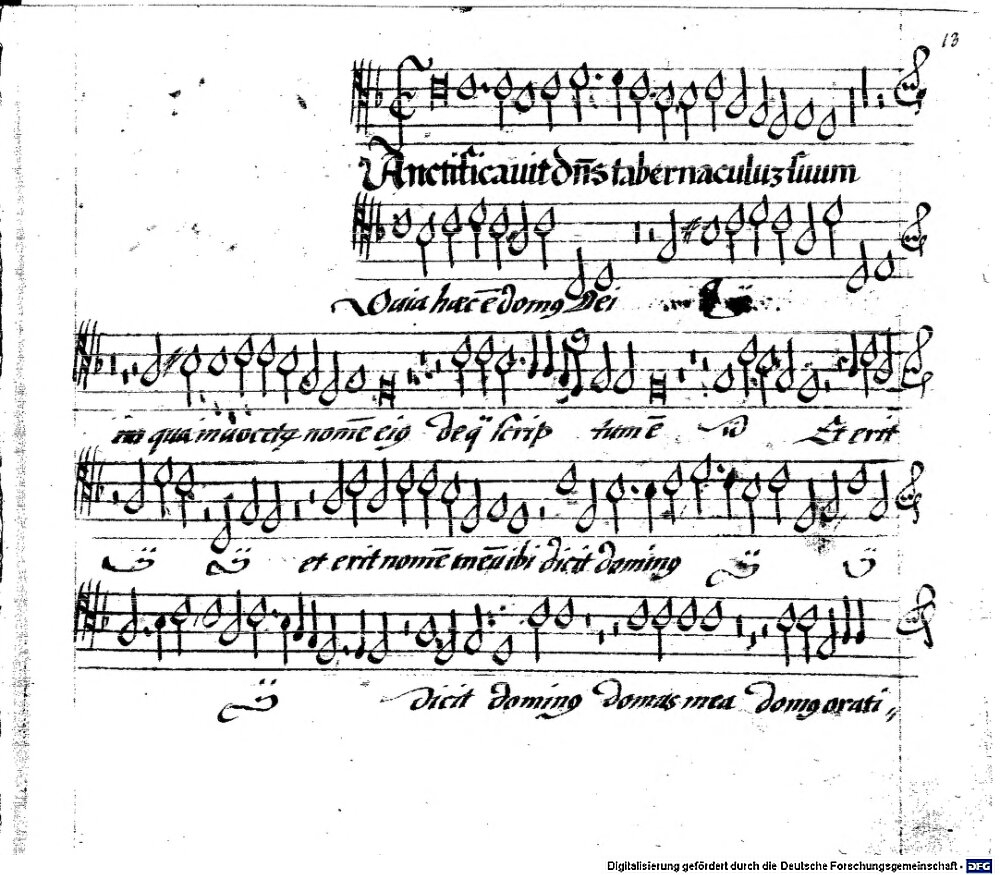 13
Anctificavit dñs tabernaculuz suum
Quia hæc ẽ domꝯ Dei ij
in qua invocetꝝ nomẽ eiꝯ de q̃ scrip tum ẽ ij Et erit
ij ij et erit nomẽ meũ ibi dicit dominꝯ ij ij
ij dicit dominꝯ domus mea domꝯ orati„
Digitalisierung gefördert durch die Deutsche Forschungsgemeinschaft - DFG